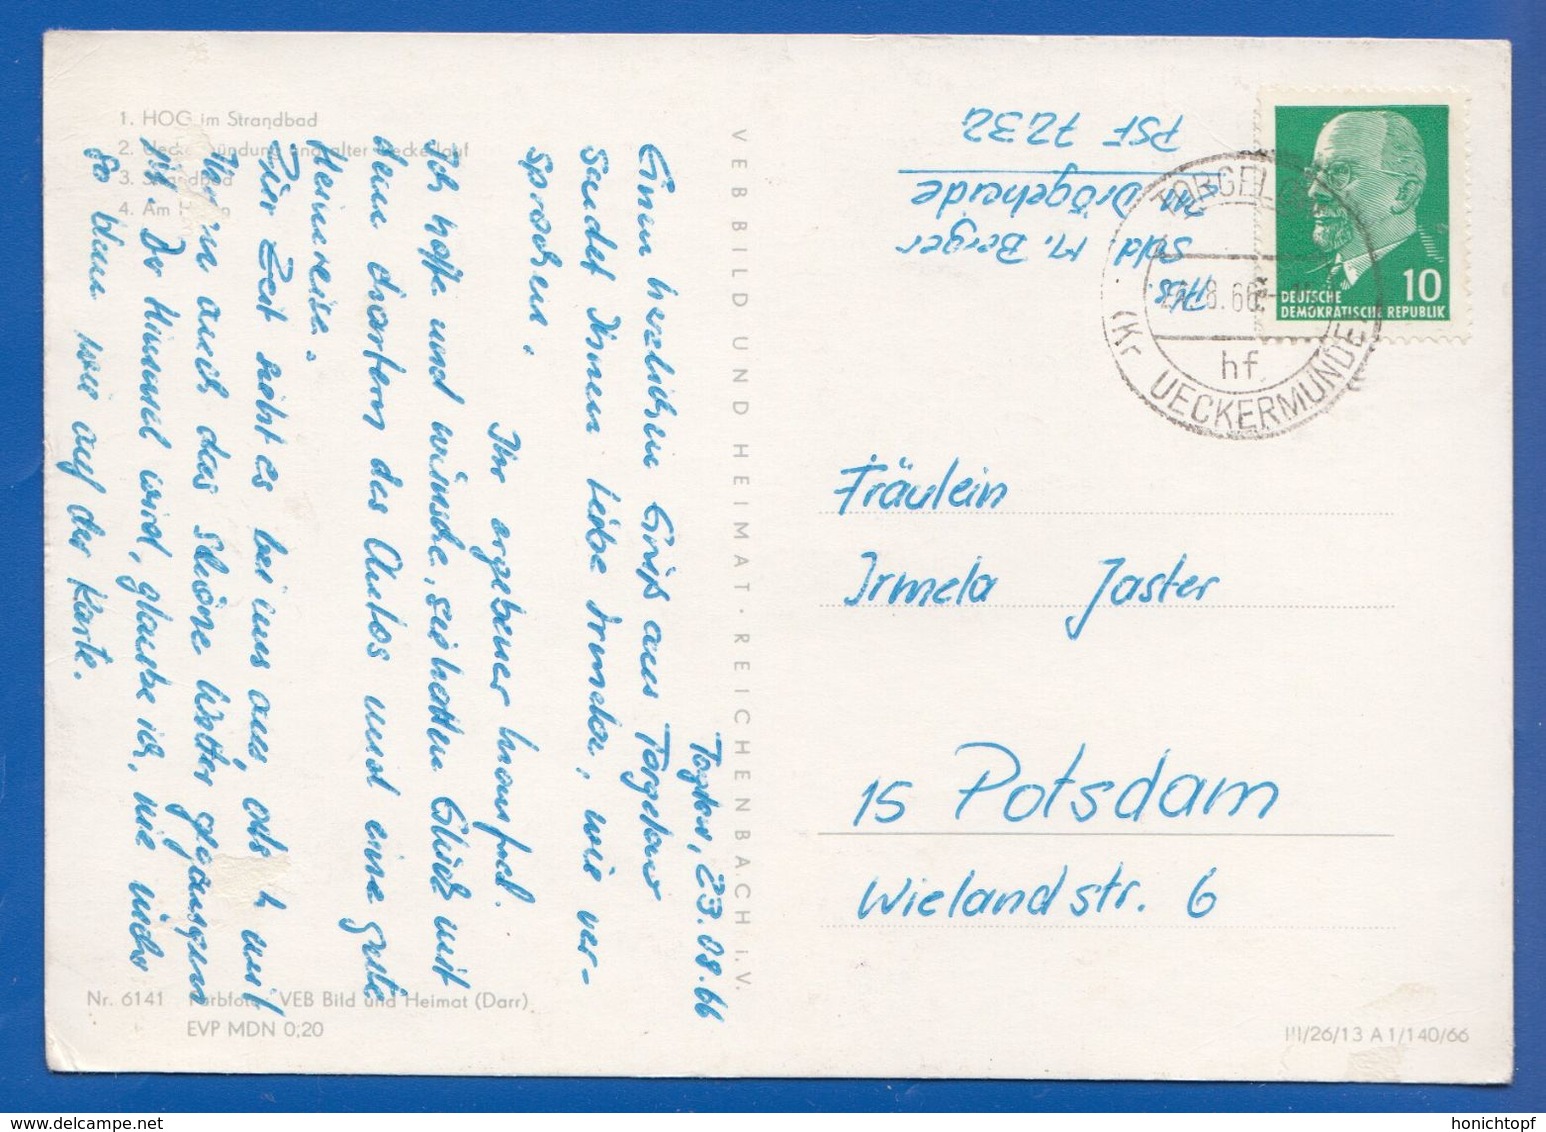 1. HOG im Strandbad
2. Ueckermündung und alter Ueckerlauf
3. Strandbad
4. Am
VEB BILD UND HEIMAT · REICHENBACH i. V.
Nr. 6141 Farbfoto: VEB Bild und Heimat (Darr)
EVP MDN 0,20
III/26/13 A 1/140/66
Torgelow, 23.08.66
Einen herzlichen Gruß aus Torgelow
sendet Ihnen liebe Irmela, wie ver-
sprochen.
Ihr ergebener Manfred.
Ich hoffe und wünsche, sie hatten Glück mit
dem starten des Autos und eine gute
Heimreise.
Zur Zeit sieht es bei uns aus, als
auch das schöne Wetter gegangen
ist. Der Himmel wird, glaube ich, nie wieder
so blau wie auf der Karte.
Abs.
Sold. M. Berger
Drögeheide
PSF 7232
DEUTSCHE
DEMOKRATISCHE REPUBLIK
10
TORGELOW
8.66
hf
(Kr UECKERMÜNDE)
Fräulein
Irmela Jaster
15 Potsdam
Wielandstr. 6
honichtopf